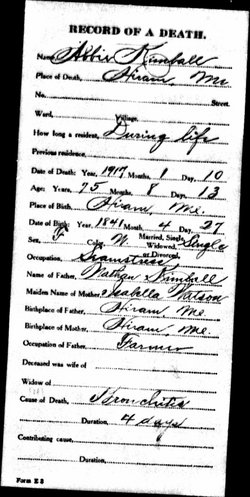 RECORD OF A DEATH.
Name, Abbie Kimball
Place of Death, Hiram, Me
No. Street.
Ward, Village,
How long a resident, During life
Previous residence,
Date of Death: Year, 1917 Months, 1 Day, 10
Age: Years, 75 Months, 8 Days, 13
Place of Birth, Hiram, Me.
Date of Birth: Year, 1841 Month, 4 Day, 27
Sex, F Color, W Married, Single, Widowed, or Divorced, Single
Occupation, Seamstress
Name of Father, Nathan Kimball
Maiden Name of Mother, Isabella Watson
Birthplace of Father, Hiram Me
Birthplace of Mother, Hiram, Me.
Occupation of Father, Farmer
Deceased was wife of
Widow of
Cause of Death, Bronchitis
Duration, 4 days
Contributing cause,
Duration,
Form E 3